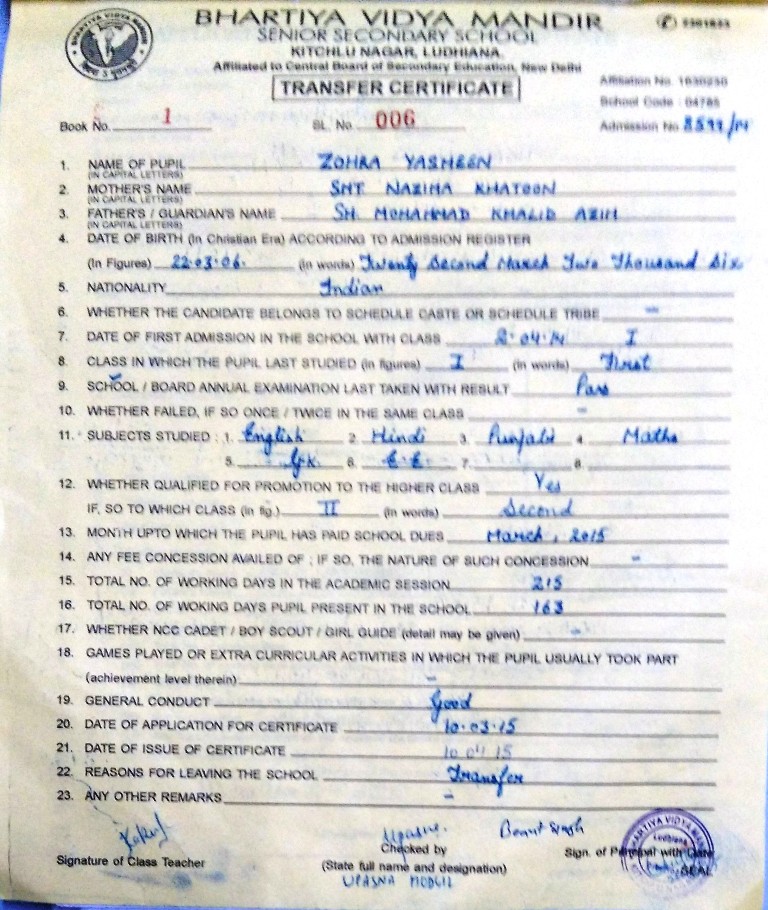 BHARTIYA VIDYA MANDIR
SENIOR SECONDARY SCHOOL
KITCHLU NAGAR, LUDHIANA.
Affiliated to Central Board of Secondary Education, New Delhi
TRANSFER CERTIFICATE
Affiliation No. 1630230
School Code : 04785
Book No. 1 SL. No. 006 Admission No 8599/14
1. NAME OF PUPIL ZOHRA YASMEEN
(IN CAPITAL LETTERS)
2. MOTHER'S NAME SMT NAZIMA KHATOON
(IN CAPITAL LETTERS)
3. FATHER'S / GUARDIAN'S NAME SH. MOHAMMAD KHALID AZIM
(IN CAPITAL LETTERS)
4. DATE OF BIRTH (In Christian Era) ACCORDING TO ADMISSION REGISTER
(In Figures) 22.03.06. (in words) Twenty Second March Two Thousand Six
5. NATIONALITY Indian
6. WHETHER THE CANDIDATE BELONGS TO SCHEDULE CASTE OR SCHEDULE TRIBE -
7. DATE OF FIRST ADMISSION IN THE SCHOOL WITH CLASS 2.04.14 I
8. CLASS IN WHICH THE PUPIL LAST STUDIED (in figures) I (in words) First
9. SCHOOL / BOARD ANNUAL EXAMINATION LAST TAKEN WITH RESULT Pass
10. WHETHER FAILED, IF SO ONCE / TWICE IN THE SAME CLASS -
11. SUBJECTS STUDIED : 1. English 2. Hindi 3. Punjabi 4. Maths
5. G.K. 6. E.E. 7. 8.
12. WHETHER QUALIFIED FOR PROMOTION TO THE HIGHER CLASS Yes
IF, SO TO WHICH CLASS (in fig.) II (in words) Second
13. MONTH UPTO WHICH THE PUPIL HAS PAID SCHOOL DUES March, 2015
14. ANY FEE CONCESSION AVAILED OF ; IF SO, THE NATURE OF SUCH CONCESSION -
15. TOTAL NO. OF WORKING DAYS IN THE ACADEMIC SESSION 215
16. TOTAL NO. OF WOKING DAYS PUPIL PRESENT IN THE SCHOOL 163
17. WHETHER NCC CADET / BOY SCOUT / GIRL GUIDE (detail may be given) -
18. GAMES PLAYED OR EXTRA CURRICULAR ACTIVITIES IN WHICH THE PUPIL USUALLY TOOK PART
(achievement level therein) -
19. GENERAL CONDUCT Good
20. DATE OF APPLICATION FOR CERTIFICATE 10.03.15
21. DATE OF ISSUE OF CERTIFICATE 10 04 15
22. REASONS FOR LEAVING THE SCHOOL Transfer
23. ANY OTHER REMARKS -
Signature of Class Teacher
Checked by
(State full name and designation)
UPASNA MODGIL
Sign. of Principal with Date
SEAL
BHARTIYA VIDYA MANDIR